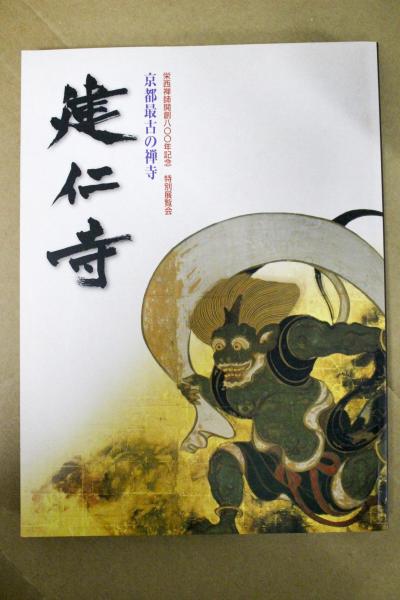 栄西禅師開創八〇〇年記念 特別展覧会
京都最古の禅寺
建仁寺